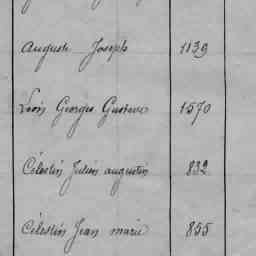 Auguste Joseph 1139
Léon Georges Gustave 1570
Célestin Julien augustin 832
Célestin Jean marie 855